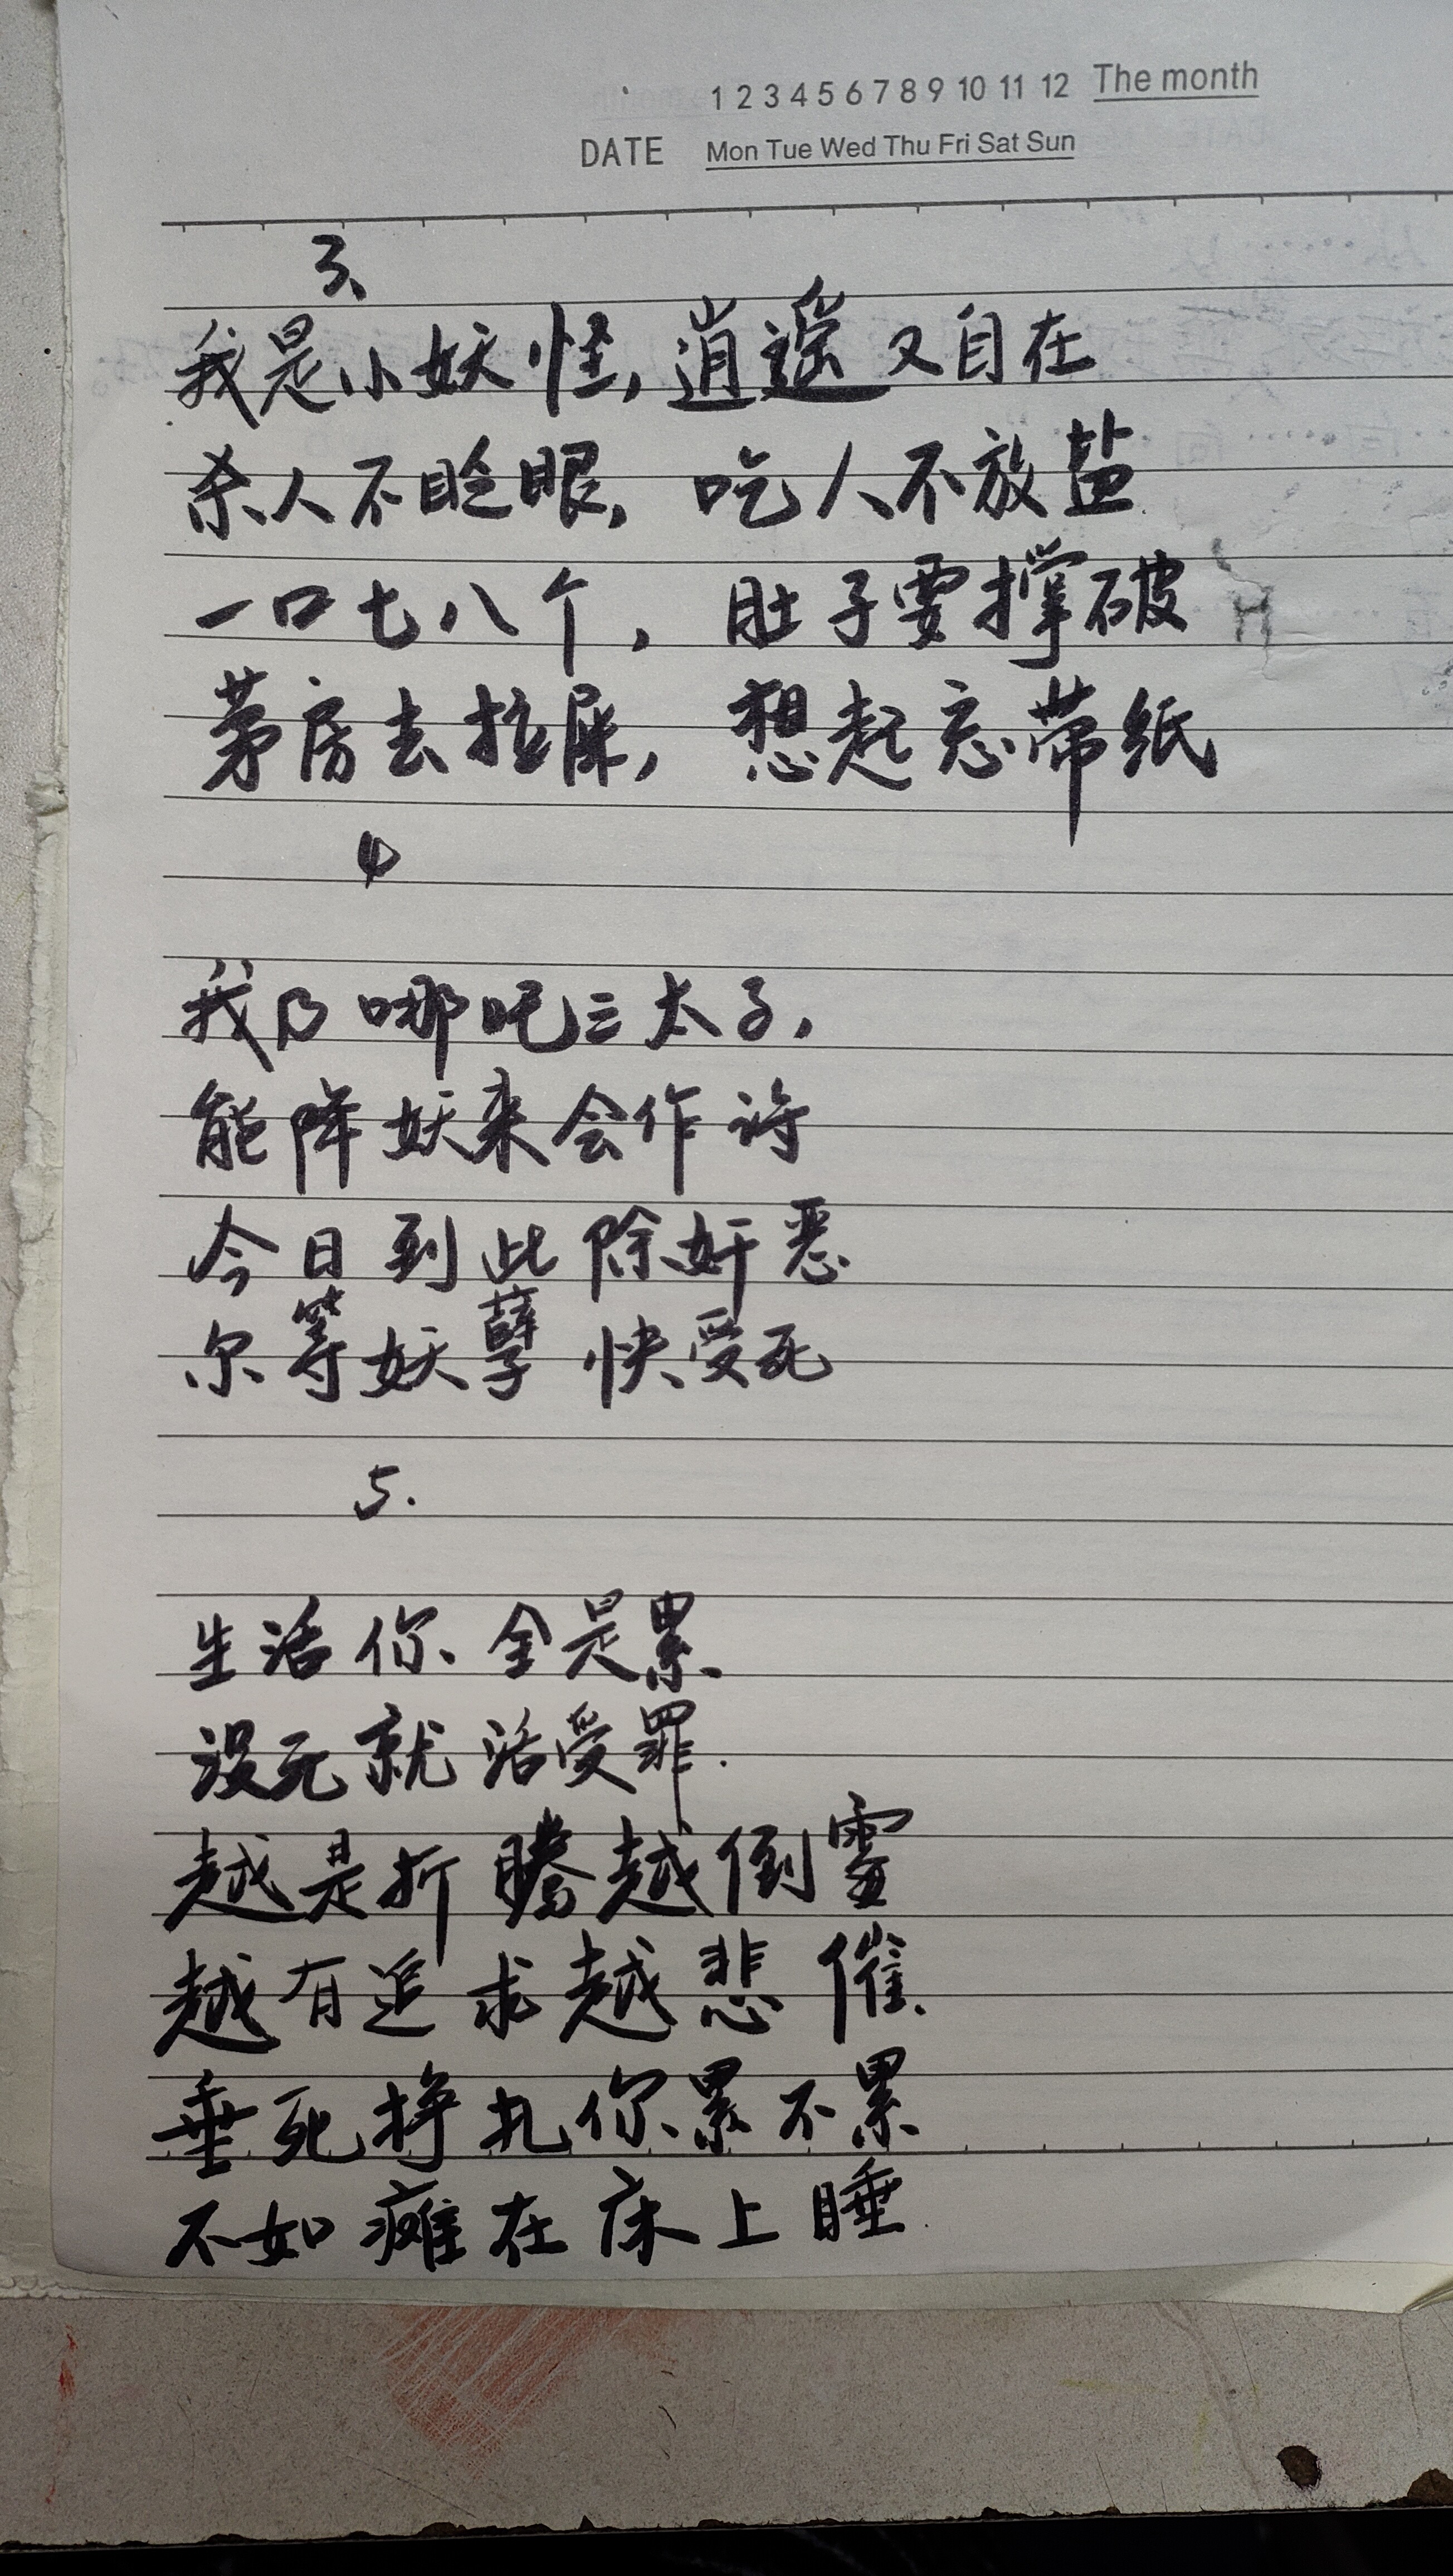 1 2 3 4 5 6 7 8 9 10 11 12 The month
DATE Mon Tue Wed Thu Fri Sat Sun
3、
我是小妖怪,逍遥又自在
杀人不眨眼,吃人不放盐
一口七八个,肚子要撑破
茅房去拉屎,想起忘带纸
4
我乃哪吒三太子,
能降妖来会作诗
今日到此除奸恶
尔等妖孽快受死
5.
生活你全是累
没死就活受罪.
越是折腾越倒霉
越有追求越悲催
垂死挣扎你累不累
不如瘫在床上睡.